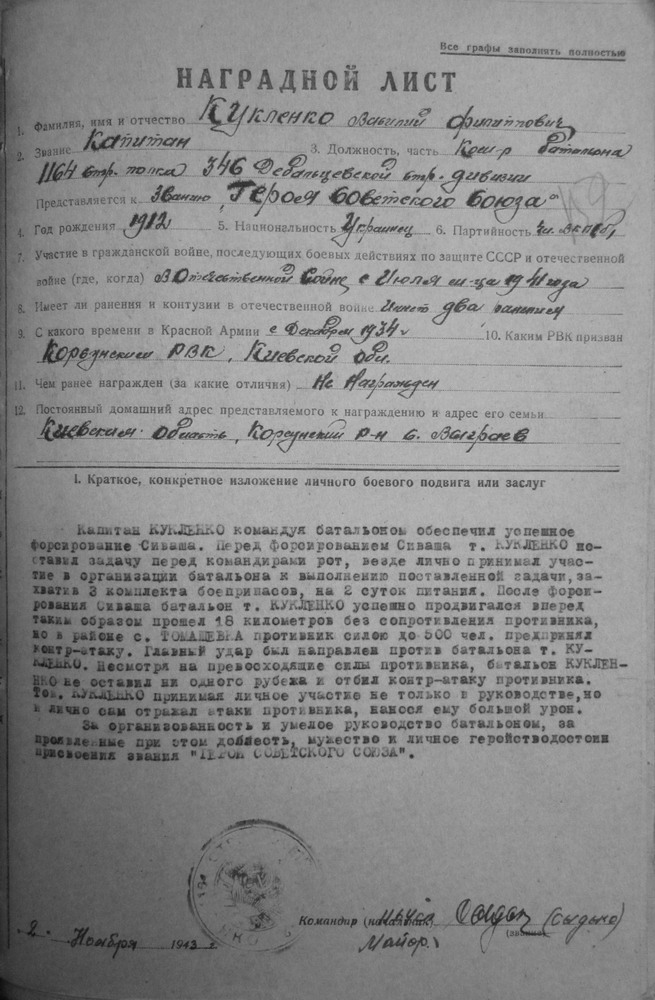 Все графы заполнить полностью
НАГРАДНОЙ ЛИСТ
1. Фамилия, имя и отчество Кукленко Василий Филиппович
2. Звание Капитан 3. Должность, часть Ком-р батальона
1164 стр. полка 346 Дебальцевской стр. дивизии
Представляется к Званию „Героя Советского Союза"
4. Год рождения 1912 5. Национальность Украинец 6. Партийность чл. ВКП(б)
7. Участие в гражданской войне, последующих боевых действиях по защите СССР и отечественной
войне (где, когда) В Отечественной войне с Июля м-ца 1941 года
8. Имеет ли ранения и контузии в отечественной войне Имеет два ранения
9. С какого времени в Красной Армии с Декабря 1934 г 10. Каким РВК призван
Корсунским РВК, Киевской обл.
11. Чем ранее награжден (за какие отличия) Не Награжден
12. Постоянный домашний адрес представляемого к награждению и адрес его семьи
Киевская область, Корсунский р-н с. Выграев
I. Краткое, конкретное изложение личного боевого подвига или заслуг
Капитан КУКЛЕНКО командуя батальоном обеспечил успешное
форсирование Сиваша. Перед форсированием Сиваша т. КУКЛЕНКО по-
ставил задачу перед командирами рот, везде лично принимал учас-
тие в организации батальона к выполнению поставленной задачи, за-
хватив 3 комплекта боеприпасов, на 2 суток питания. После форси-
рования Сиваша батальон т. КУКЛЕНКО успешно продвигался вперед
таким образом прошел 18 километров без сопротивления противника,
но в районе с. ТОМАШЕВКА противник силою до 500 чел. предпринял
контр-атаку. Главный удар был направлен против батальона т. КУ-
КЛЕНКО. Несмотря на превосходящие силы противника, батальон КУКЛЕН-
НКО не оставил ни одного рубежа и отбил контр-атаку противника.
Тов. КУКЛЕНКО принимая личное участие не только в руководстве, но
и лично сам отражал атаки противника, нанося ему большой урон.
За организованность и умелое руководство батальоном, за
проявленные при этом доблесть, мужество и личное геройстводостоин
присвоения звания "ГЕРОЙ СОВЕТСКОГО СОЮЗА".
Командир (начальник)
(звание)
Майор
2. Ноября 1943 г.